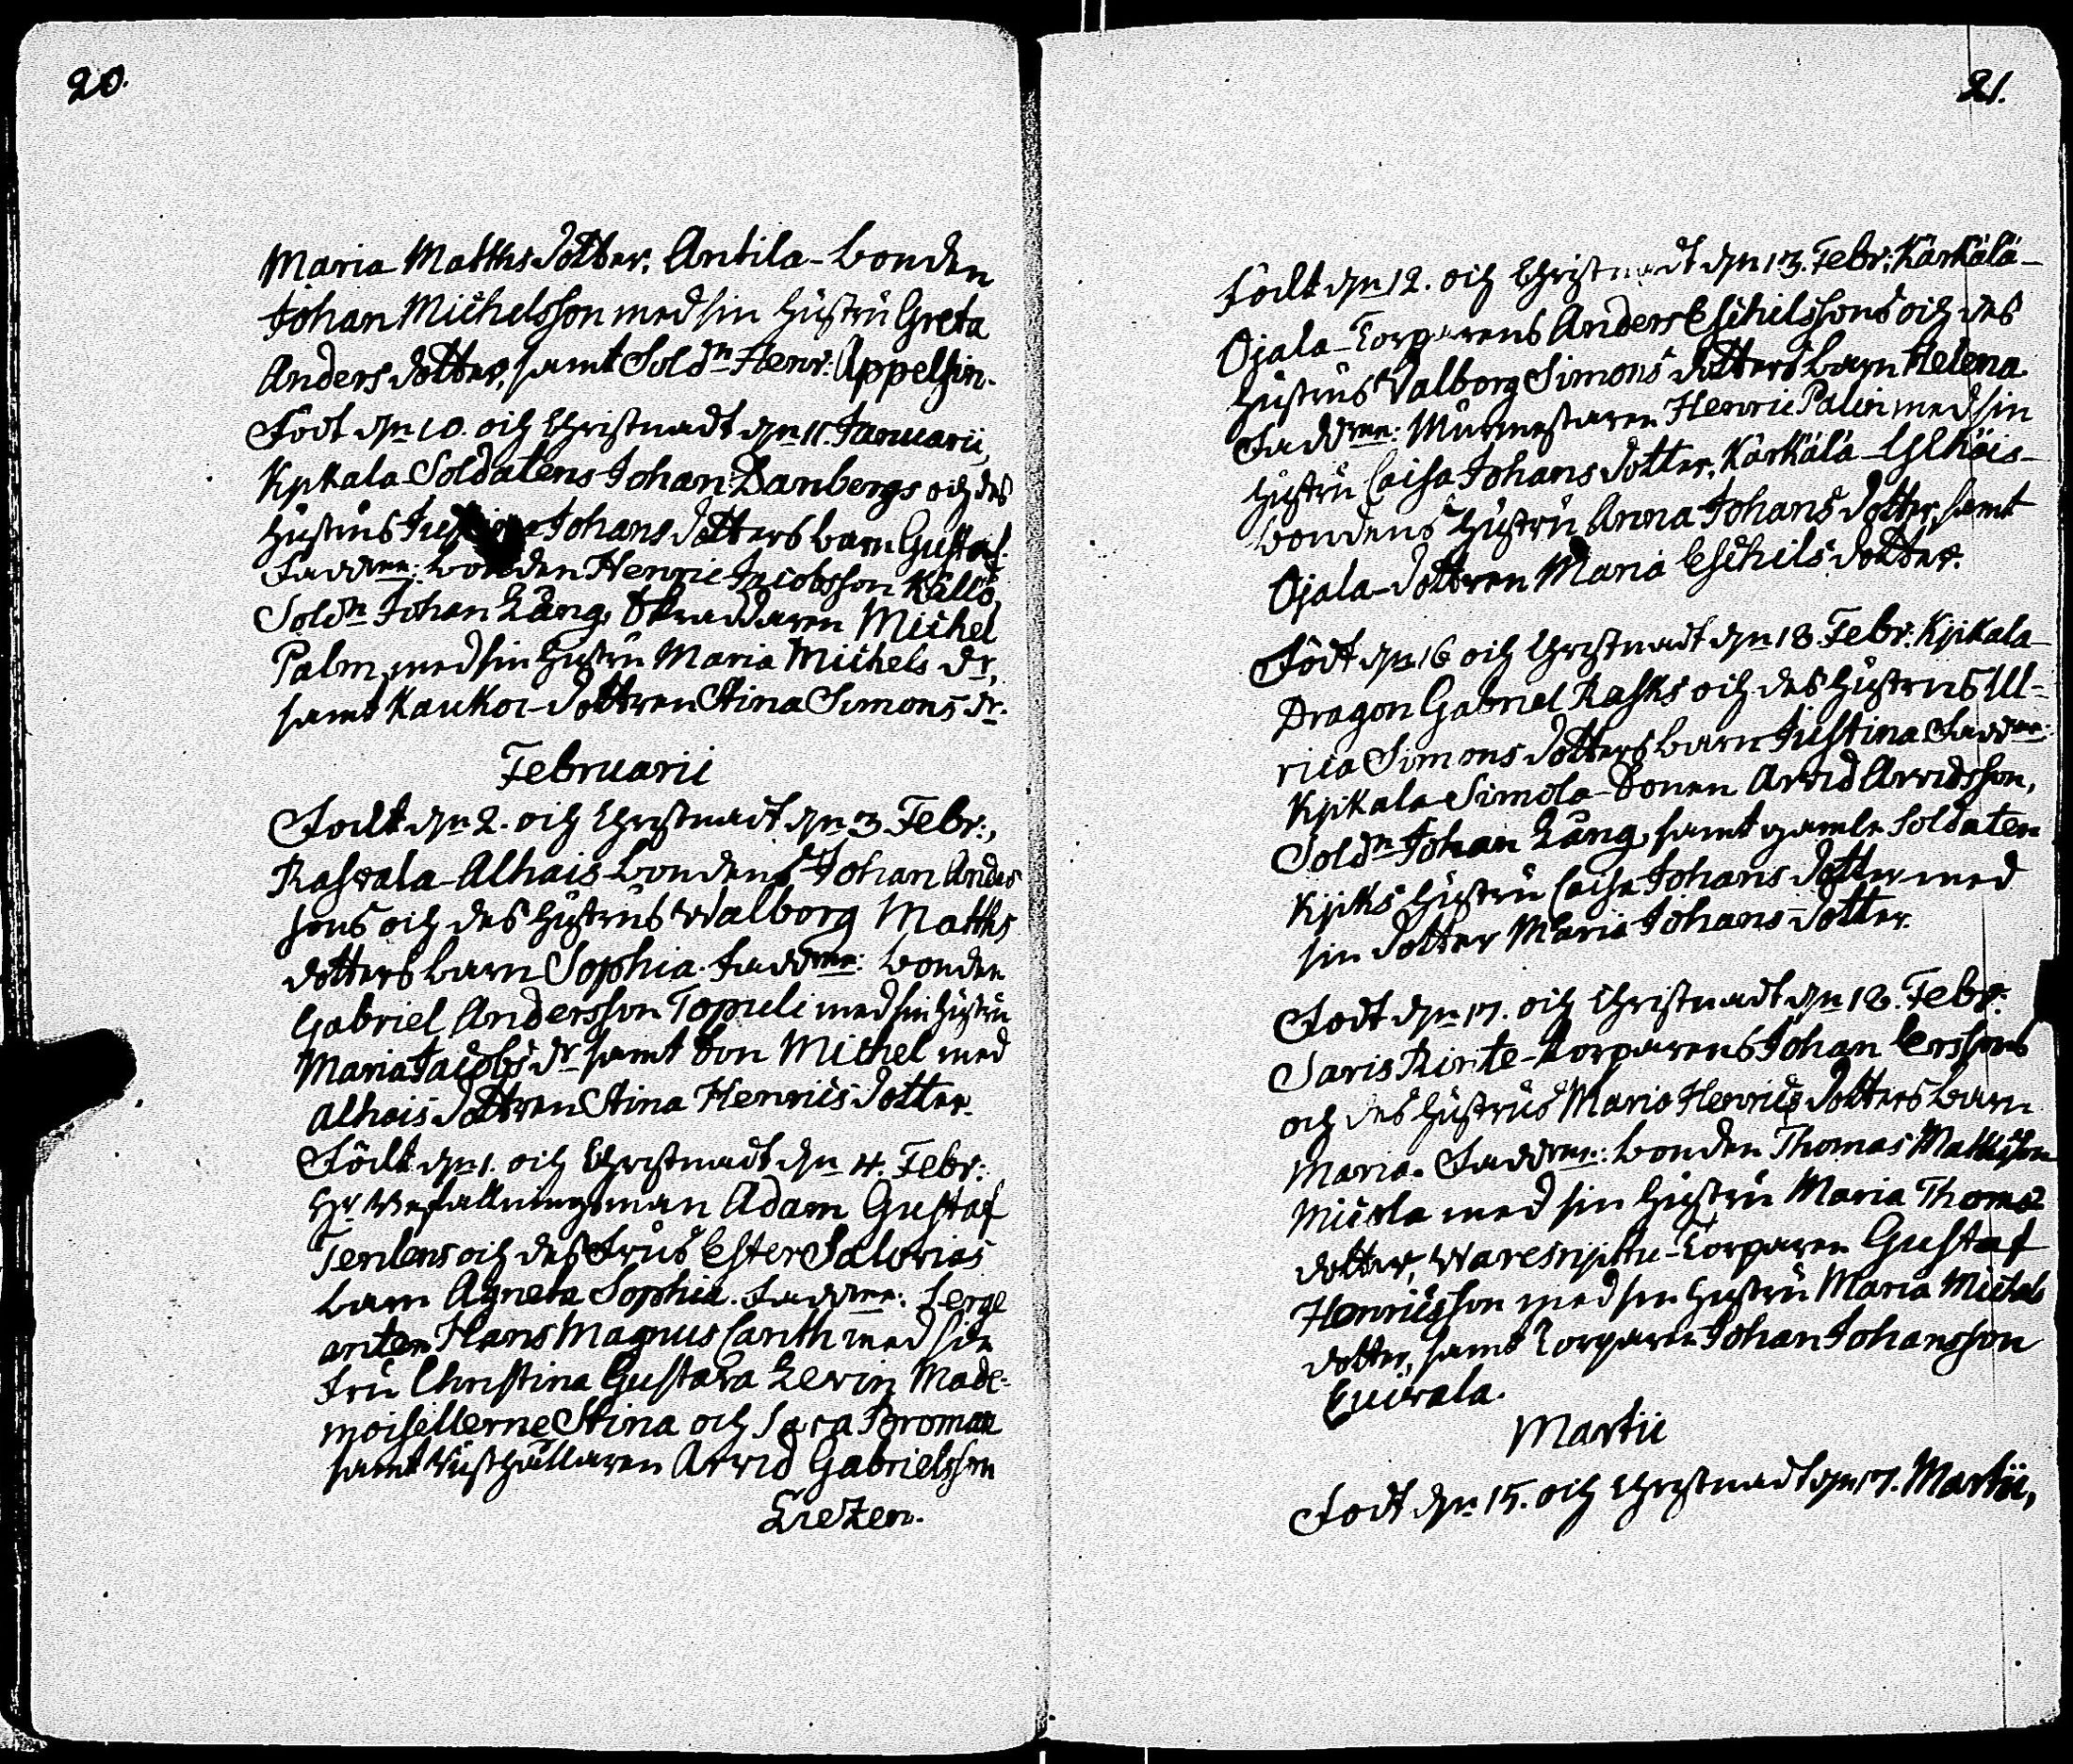 20.
Maria Matths dotter. Antila-bonden
Johan Michelsson med sin hustru Greta
Anders dotter, samt Sold:n Henr: Appelgrin.
Född d:n 10. och Christnadt d:n 11. Januarii,
Kjikala Soldatens Johan Danbergs och des
hustrus Justina Johans dotters barn Gustaf.
Faddrar: bonden Henric Jacobsson Kållo,
Sold:n Johan Lång, Skräddaren Michel
Palm, med sin hustru Maria Michels dr,
samt Kaukoi-dottren Stina Simons dr.
Februarii
Född d:n 2. och Christnadt d:n 3. Febr:,
Rasvala-Alhais-bondens Johan Anders
sons och des hustrus Walborg Matths
dotters barn Sophia. Faddrar: bonden
Gabriel Andersson Topuli med sin hustru
Maria Jacobs dr samt son Michel med
Alhais dottren Stina Henrics dotter.
Född d:n 1. och Christnadt d:n 4. Febr:.
Hr Befallningsman Adam Gustaf
Terlens och des Frus Ester Salorias
barn Agneta Sophia. Faddrar: Serge
anten Hans Magnus Canth med sin
fru Christina Gustava Levin, Made-
moisellerne Stina och Sara Broman
samt Rusthållaren Arvid Gabrielsson
Lietzen.
21.
Född d:n 12. och Christnadt d:n 13. Febr: Kärkälä-
Ojala-Torparens Anders Eschilssons och des
hustrus Valborg Simons dotters barn Helena.
Faddrar: Murmestaren Henric Palin med sin
hustru Caisa Johans dotter, Kärkälä-
bondens hustru Anna Johans dotter, samt
Ojala-dottren Maria Eschils dotter.
Född d:n 16 och Christnadt d:n 18. Febr: Kjikala-
Dragon Gabriel Rasks och des hustrus Ul-
rica Simons dotters barn Justina Faddrar:
Kjikala-Simola-Sonen Arvid Arvidsson,
Sold:n Johan Lång, samt gamle Soldaten
Kjiks hustru Caisa Johans dotter med
sin dotter Maria Johans-dotter.
Född d:n 17. och Christnadt d:n 18. Febr:
Saris Rinte-torparens Johan Erssons
och des hustrus Maria Henrics dotters barn
Maria. Faddrar: bonden Thomas Mattsson
Micola med sin hustru Maria Thomæ
dotter, Torparen Gustaf
Henricsson med sin hustru Maria Michels
dotter, samt Torparen Johan Johansson
Cuivala.
Martii
Född d:n 15. och Christnadt d:n 17. Martii,